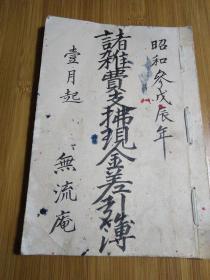 昭和参戊辰年
諸雑費支拂現金差引簿
壹月起
無流庵